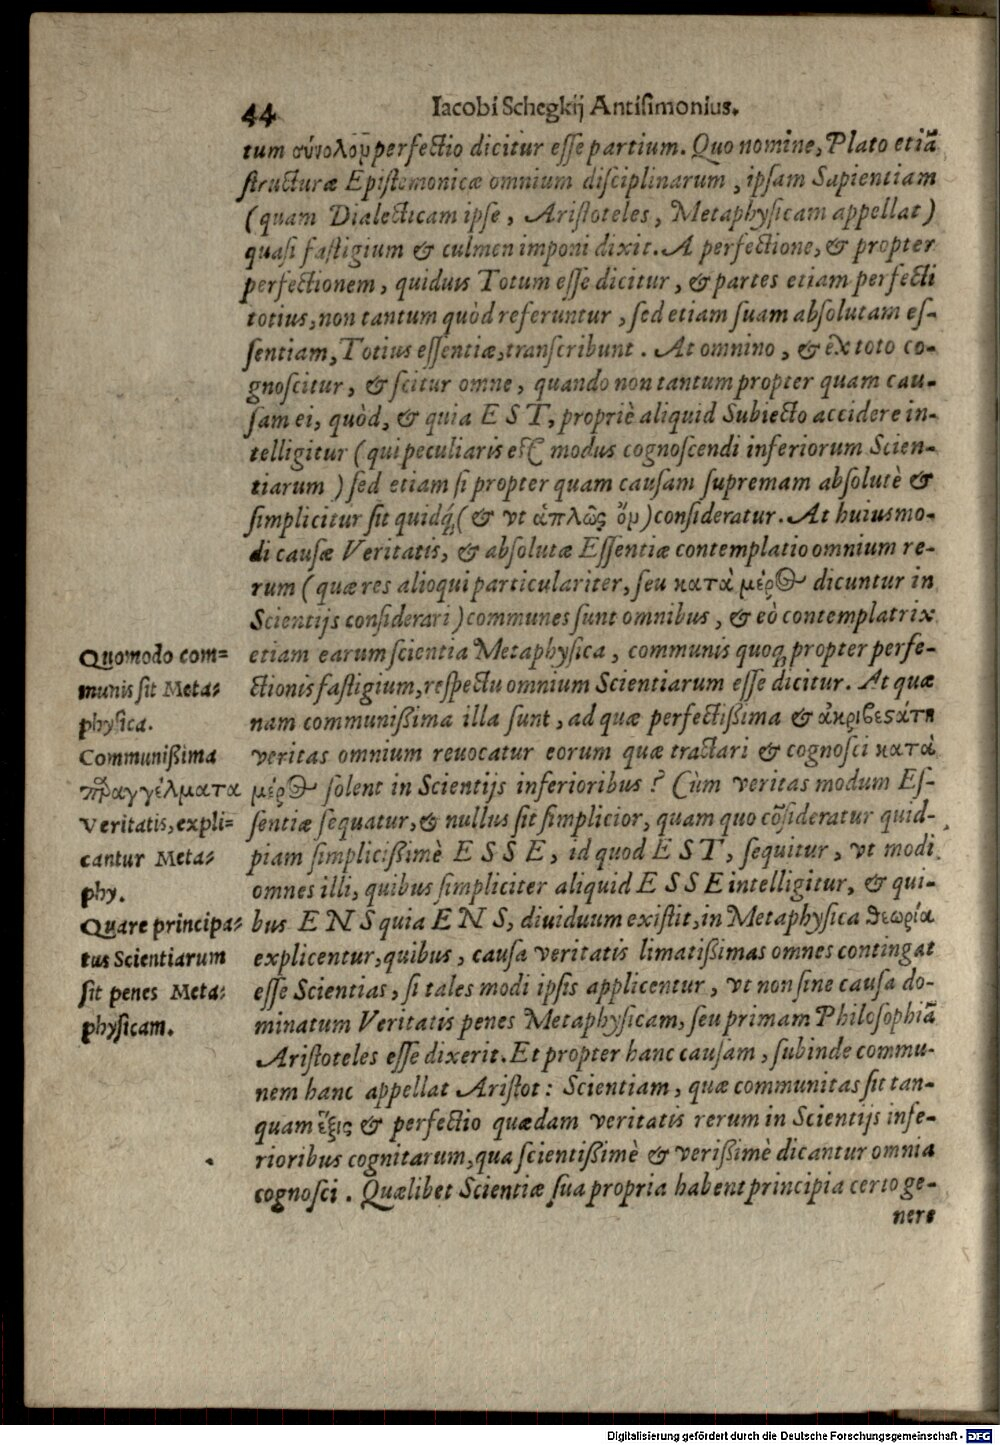 44
Iacobi Schegkij Antisimonius.
tum σύνολον perfectio dicitur esse partium. Quo nomine, Plato etiã
structuræ Epistemonicæ omnium disciplinarum, ipsam Sapientiam
(quam Dialecticam ipse, Aristoteles, Metaphysicam appellat)
quasi fastigium & culmen imponi dixit. A perfectione, & propter
perfectionem, quiduis Totum esse dicitur, & partes etiam perfecti
totius, non tantum quòd referuntur, sed etiam suam absolutam es-
sentiam, Totius essentiæ, transcribunt. At omnino, & ex toto co-
gnoscitur, & scitur omne, quando non tantum propter quam cau-
sam ei, quòd, & quia EST, propriè aliquid Subiecto accidere in-
telligitur (qui peculiaris est modus cognoscendi inferiorum Scien-
tiarum) sed etiam si propter quam causam supremam absolutè &
simplicitur sit quidq́; (& vt ἁπλῶς ὂν) consideratur. At huiusmo-
di causæ Veritatis, & absolutæ Essentiæ contemplatio omnium re-
rum (quæ res alioqui particulariter, seu κατὰ μέρος dicuntur in
Scientijs considerari) communes sunt omnibus, & eò contemplatrix
etiam earum scientia Metaphysica, communis quoq; propter perfe-
ctionis fastigium, respectu omnium Scientiarum esse dicitur. At quæ
nam communißima illa sunt, ad quæ perfectißima & ἀκριβεςάτη
veritas omnium reuocatur eorum quæ tractari & cognosci κατὰ
μέρος solent in Scientijs inferioribus? Cùm veritas modum Es-
sentiæ sequatur, & nullus sit simplicior, quam quo cõsideratur quid-
piam simplicißimè ESSE, id quod EST, sequitur, vt modi
omnes illi, quibus simpliciter aliquid ESSE intelligitur, & qui-
bus ENS quia ENS, diuiduum existit, in Metaphysica θεωρία
explicentur, quibus, causa veritatis limatißimas omnes contingat
esse Scientias, si tales modi ipsis applicentur, vt non sine causa do-
minatum Veritatis penes Metaphysicam, seu primam Philosophiã
Aristoteles esse dixerit. Et propter hanc causam, subinde commu-
nem hanc appellat Aristot: Scientiam, quæ communitas sit tan-
quam ἕξις & perfectio quædam veritatis rerum in Scientijs infe-
rioribus cognitarum, qua scientißimè & verißimè dicantur omnia
cognosci. Quælibet Scientiæ sua propria habent principia certo ge-
nere
Quomodo com=
munis sit Meta=
physica.
Communißima
πραγγέλματα
Veritatis, expli=
cantur Meta=
phy.
Quare principa=
tus Scientiarum
sit penes Meta=
physicam.
Digitalisierung gefördert durch die Deutsche Forschungsgemeinschaft - DFG